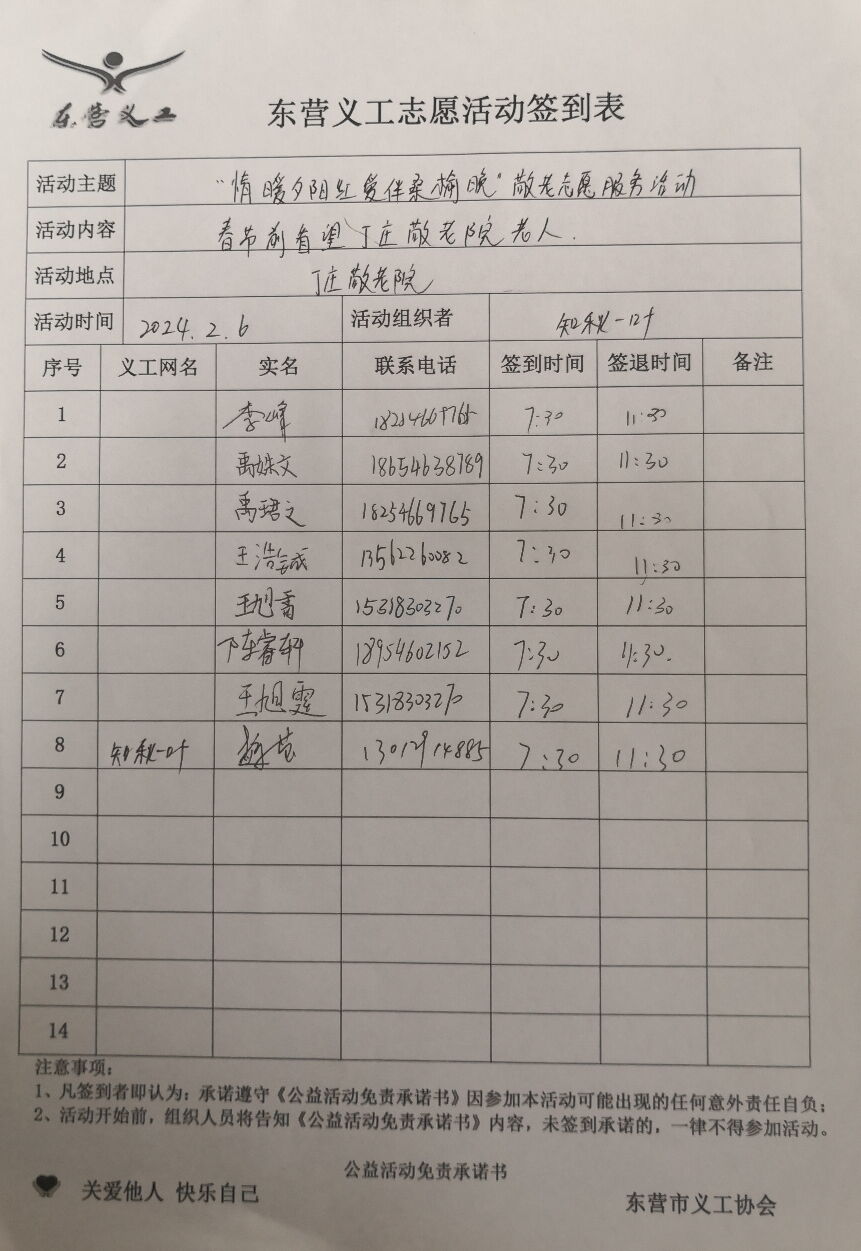 东营义工
东营义工志愿活动签到表
活动主题 "情暖夕阳红爱伴桑榆晚"敬老志愿服务活动
活动内容 春节前看望丁庄敬老院老人.
活动地点 丁庄敬老院
活动时间 2024.2.6 活动组织者 知秋一叶
序号 义工网名 实名 联系电话 签到时间 签退时间 备注
1 李峰 18254669765 7:30 11:30
2 禹姝文 18654638789 7:30 11:30
3 禹珺文 18254669765 7:30 11:30
4 王浩诚 13562260082 7:30 11:30
5 王旭 15318303270 7:30 11:30
6 陈睿轩 18954602152 7:30 11:30.
7 王旭霆 15318303270 7:30 11:30
8 知秋一叶 13012914885 7:30 11:30
9
10
11
12
13
14
注意事项:
1、凡签到者即认为:承诺遵守《公益活动免责承诺书》因参加本活动可能出现的任何意外责任自负;
2、活动开始前,组织人员将告知《公益活动免责承诺书》内容,未签到承诺的,一律不得参加活动。
公益活动免责承诺书
关爱他人 快乐自己
东营市义工协会